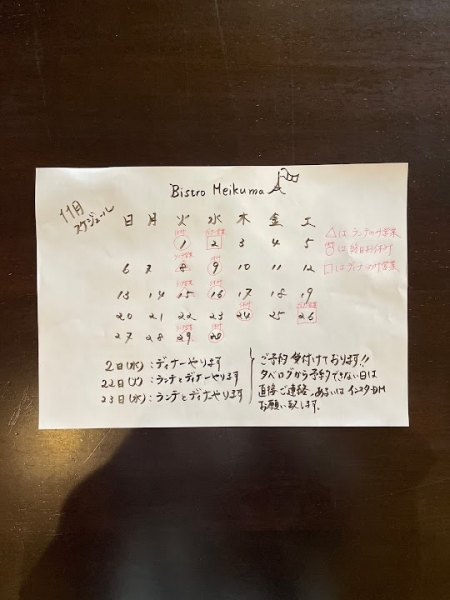 Bistro Meikuma
11月
スケジュール
日 月 火 水 木 金 土
1 2 3 4 5
6 7 8 9 10 11 12
13 14 15 16 17 18 19
20 21 22 23 24 25 26
27 28 29 30
△は ランチのみ営業
○は 終日お休み
□は ディナーのみ営業
2日(水):ディナーやります
22日(火):ランチとディナーやります
23日(水):ランチとディナーやります
ご予約受付けております!!
タベログから予約できない日は
直接ご連絡、あるいは インスタDM
お願い致します。